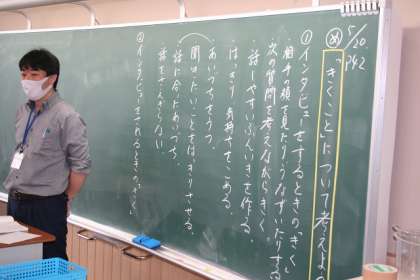 5/20 P42
め 「きくこと」について考えよう
①インタビューをするときの「きく」
相手の様子を見たりうなずいたりする
次の質問を考えながらきく。
話しやすいふんいきを作る。
はっきり 気持ちをこめる。
あいづちをうつ。
聞きたいことをはっきりさせる。
話に合ったあいづち。
話をさえぎらない。
②インタビューをされるときの「きく」